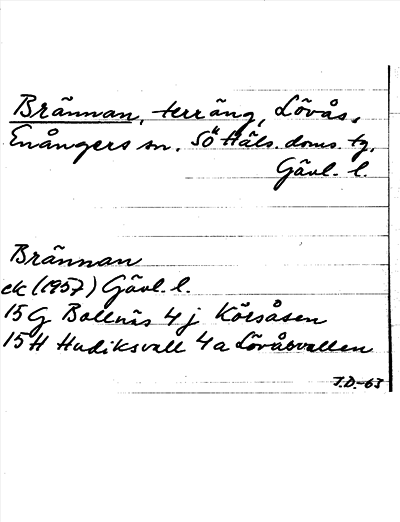 Brännan, terräng, Lövås,
Enångers sn. Sö Häls. doms. tg.
Gävl. l.
Brännan
ek (1957) Gävl. l.
15 G Bollnäs 4 j Körsåsen
15 H Hudiksvall 4 a Lövåsvallen
J.D.-63